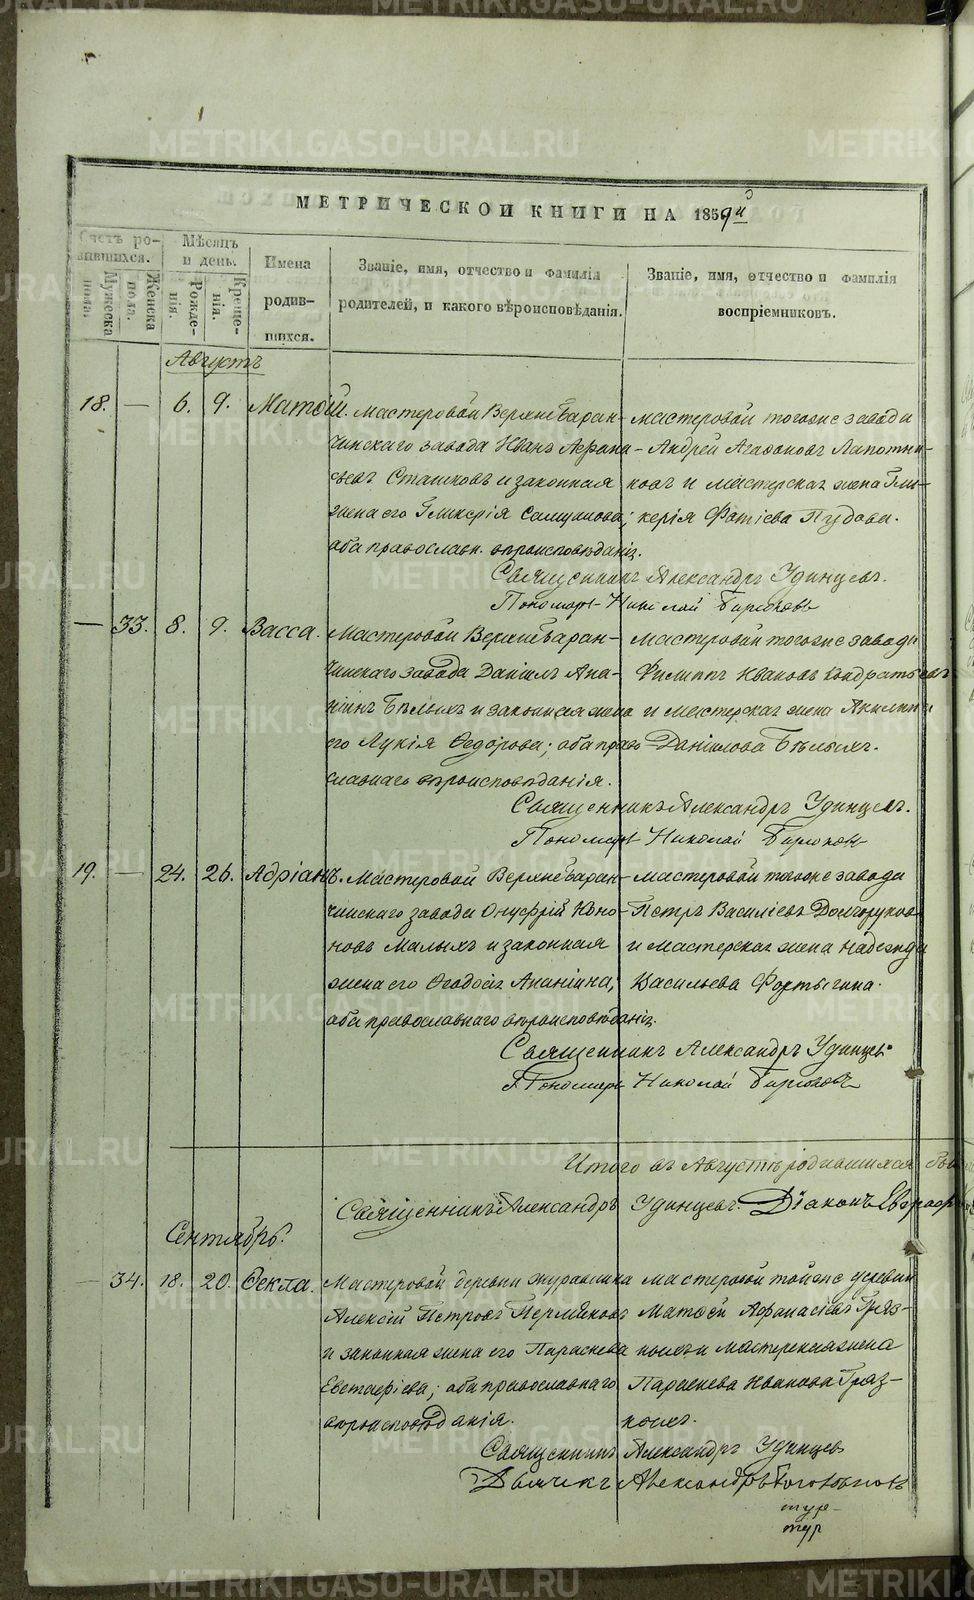 МЕТРИЧЕСКОЙ КНИГИ НА 1859й
Счетъ родившихся.
Мѣсяцъ и день.
Имена родившихся.
Званіе, имя, отчество и фамилія
родителей, и какого вѣроисповѣданія.
Званіе, имя, отчество и фамилія
воспріемниковъ.
Мужеска пола.
Женска пола.
Рожденія.
Крещенія.
Августъ
18. — 6. 9. Матѳій.
Мастеровой Верхнебаран-
чинскаго завода Иванъ Аѳана-
сьевъ Сташковъ и законная
жена его Гликерія Самуилова;
оба православн. вѣроисповѣданія.
мастеровой тогоже завода
Андрей Агафоновъ Лапотни-
ковъ и мастерская жена Гли-
керія Фотіева Пудова.
Священникъ Александръ Удинцевъ.
Пономарь Николай Бирюковъ
— 33. 8. 9. Васса.
Мастеровой Верхнебаран-
чинскаго завода Даніилъ Ана-
ніинъ Бѣлыхъ и законная жена
его Лукія Ѳедорова; оба право
славнаго вѣроисповѣданія.
Мастеровой тогоже завода
Филиппъ Ивановъ Кондратьевъ
и мастерская жена Акилина
Даніилова Бѣлыхъ.
Священникъ Александръ Удинцевъ.
Пономарь Николай Бирюковъ
19. — 24. 26. Адріанъ.
Мастеровой Верхнебаран-
чинскаго завода Онуфрій Коно-
новъ Малыхъ и законная
жена его Ѳеодосія Ананіина,
оба православнаго вѣроисповѣданія.
Мастеровой тогоже завода
Петръ Василіевъ Долгоруков
и мастерская жена Надежда
Васильева Фортыгина.
Священникъ Александръ Удинцевъ
Пономарь Николай Бирюковъ
Итого въ Августѣ родившихся
Священникъ Александръ Удинцевъ. Діаконъ
Сентябрь.
— 34. 18. 20. Ѳекла.
Мастеровой деревни Журавлика
Алексій Петровъ Пермяковъ
и законная жена его Параскева
Евстафіева; оба православнаго
вѣроисповѣданія.
мастеровой тойже деревни
Матѳей Аѳанасіевъ Гряз-
ныхъ и мастерская жена
Параскева Иванова Гряз-
ныхъ.
Священникъ Александръ Удинцевъ
Дьячекъ Александръ
METRIKI.GASO-URAL.RU